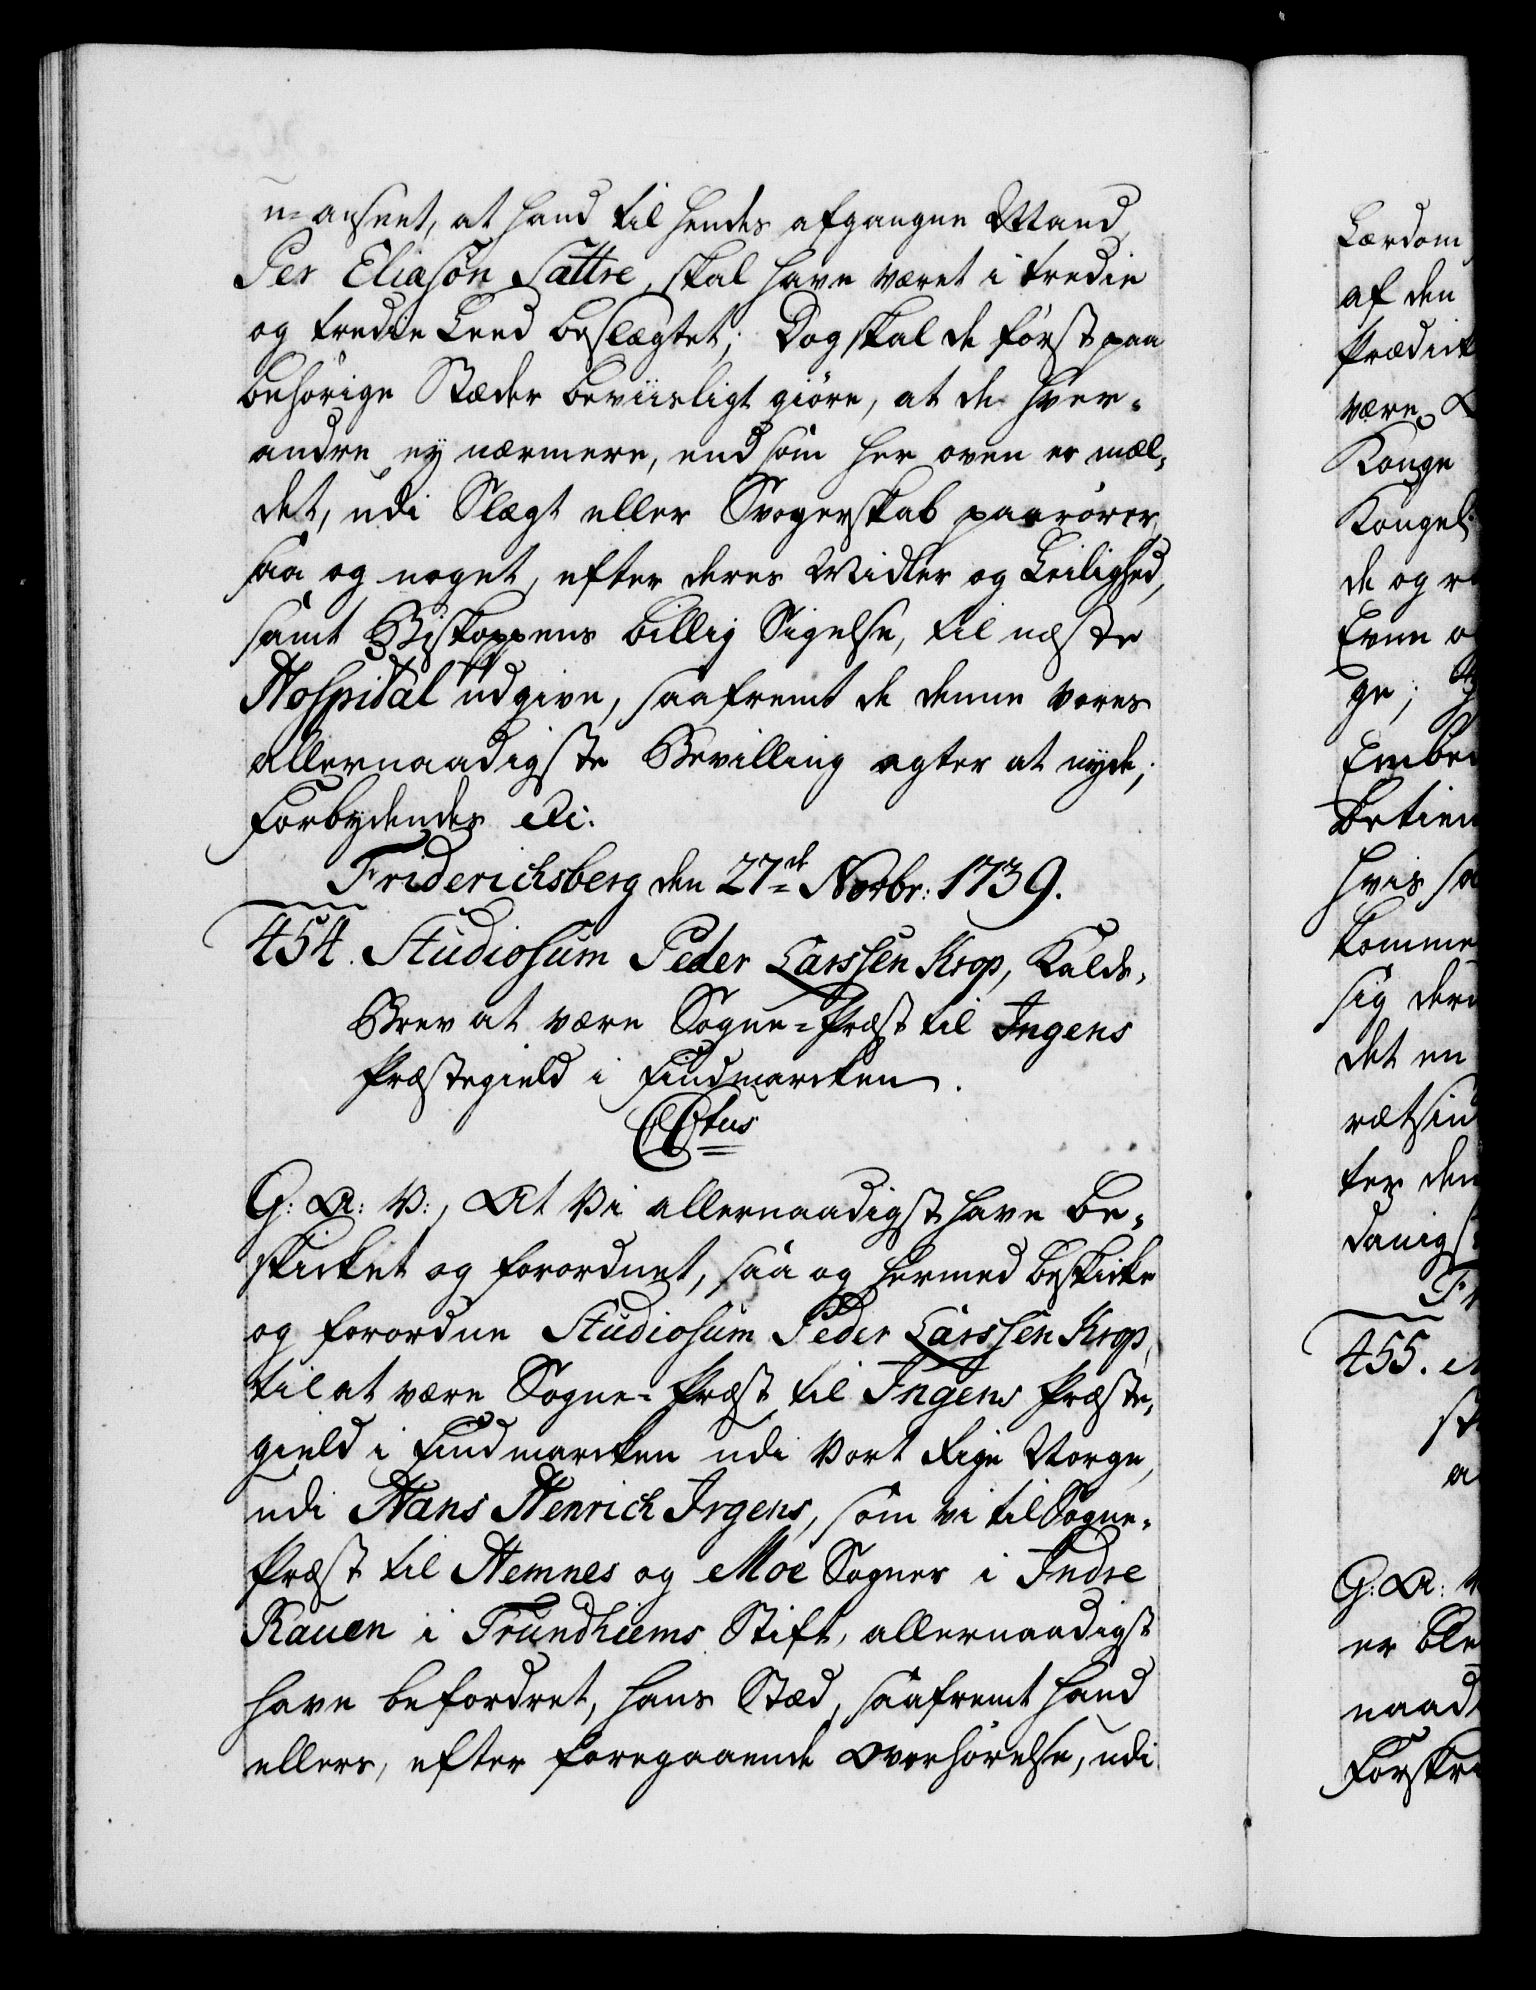 u-anseet, at hand til hendes afgangne Mand
Per Eliasøn Sattre, skal have været i tredie
og tredie Leed beslægtet; Dog skal de først paa
behørige Stæder beviisligt giøre, at de hver-
andre ey nærmere, end som her oven er mæl-
det, udi Slægt eller Svogerskab paarører,
saa og noget, efter deres Midler og Leilighed,
samt Biskoppens billig Sigelse, til næste
Hospital udgive, saafremt de denne vores
allernaadigste Bevilling agter at nyde;
Forbydendes etc:
Friderichsberg den 27de Novbr: 1739.
454. Studiosum Peder Larssen Krop, Kalds-
Brev at være Sogne-Præst til Ingens
Præstegield i Findmarcken.
CCtus
G: A: V:, At Vi allernaadigst have be-
skicket og forordnet, saa og hermed beskicke
og forordne Studiosum Peder Larssen Krop,
til at være Sogne-Præst til Ingens Præste-
gield i Findmarcken udi Vort Rige Norge,
udi Hans Henrich Irgens, som vi til Sogne-
Præst til Hemnes og Moe Sogner i Indre
Rauen i Trundhiems Stift, allernaadigst
have befordret, hans Stæd, saafremt hand
ellers, efter foregaaende Overhørelse, udi
Lærdom
af den
Prædik
være
Konge
Kongel:
de og
Evne
ge;
Embe
betien
hvis
komme
sig
det en
retsin
ter den
danig
455.
G: A:
er ble
naad
Forskr